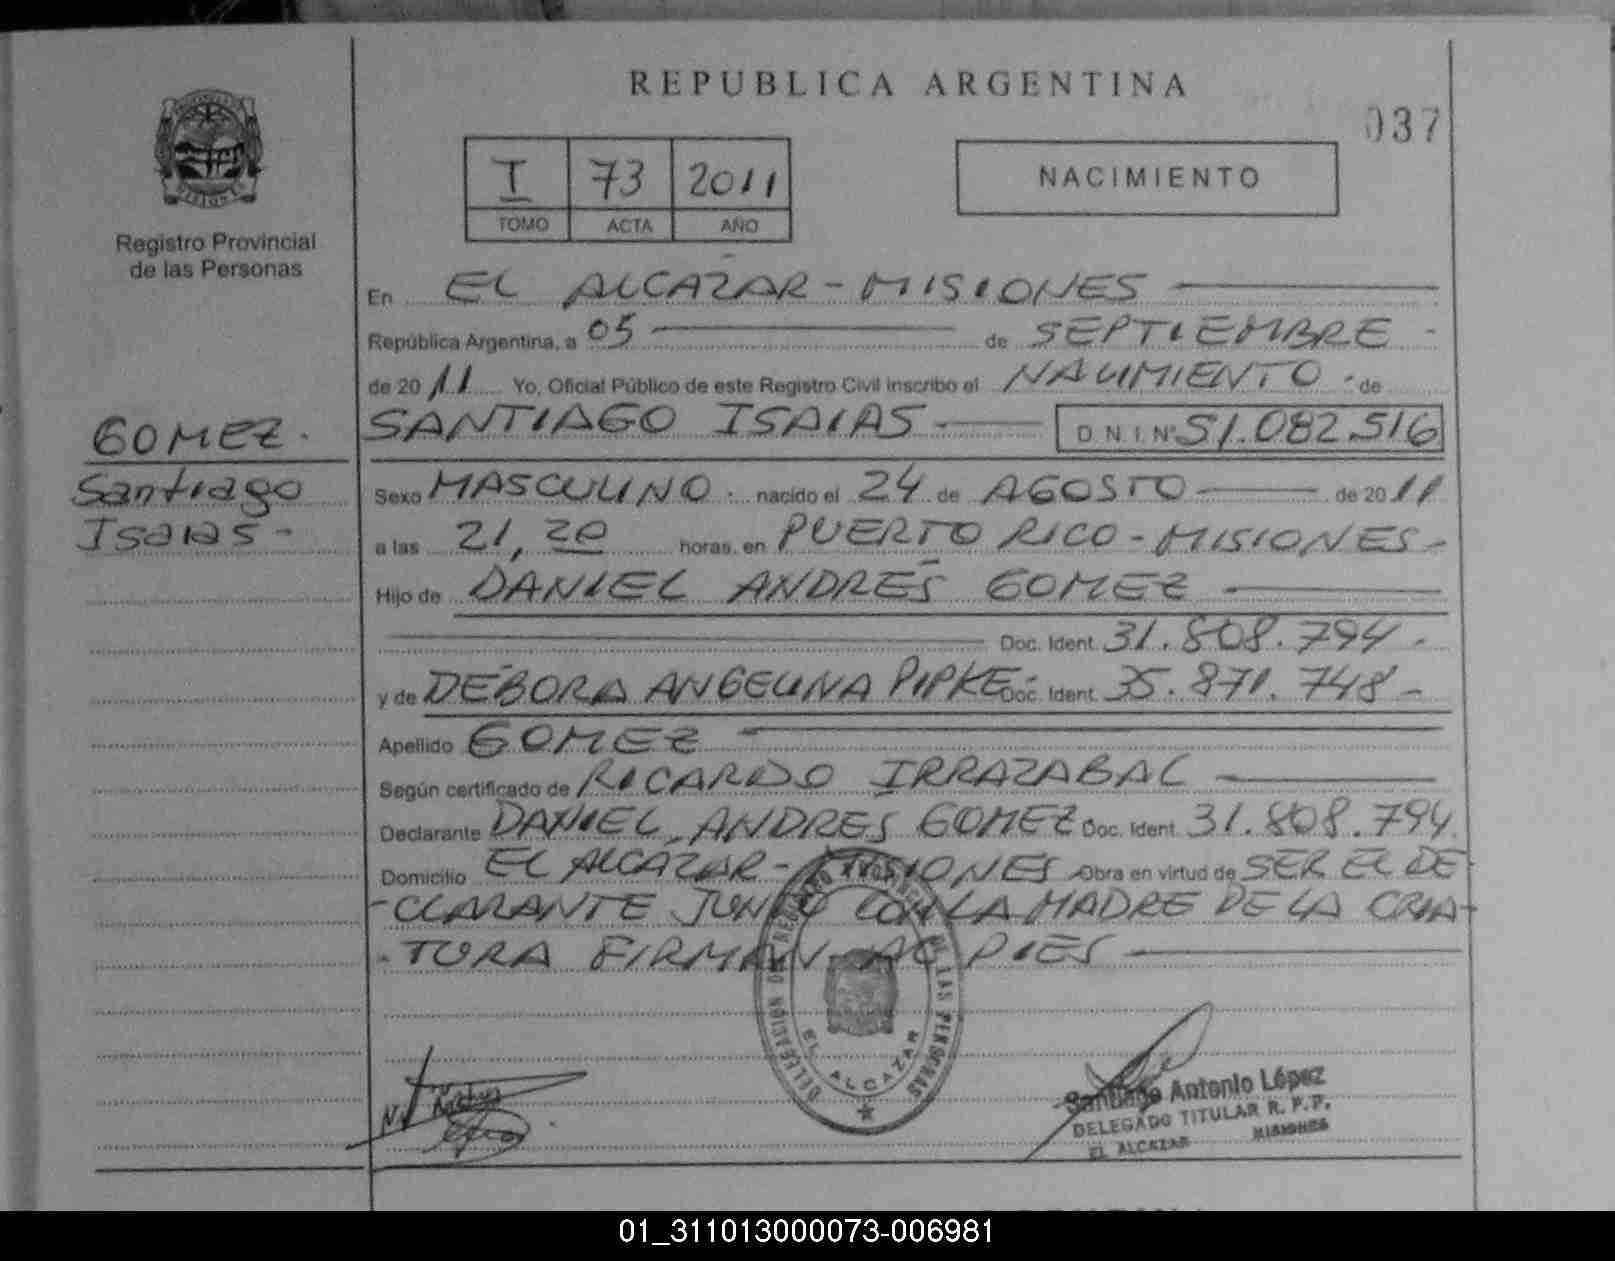 REPUBLICA ARGENTINA
037
I 73 2011
TOMO ACTA AÑO
NACIMIENTO
Registro Provincial
de las Personas
En EL ALCAZAR - MISIONES
República Argentina, a 05 de SEPTIEMBRE
de 2011 Yo, Oficial Público de este Registro Civil inscribo el NACIMIENTO de
SANTIAGO ISAIAS D.N.I. Nº 51.082.516
GOMEZ.
Santiago
Isaias -
Sexo MASCULINO. nacido el 24 de AGOSTO de 2011
a las 21,20 horas. en PUERTO RICO - MISIONES -
Hijo de DANIEL ANDRÉS GOMEZ
Doc. Ident. 31.808.794 -
y de DÉBORA ANGELINA PIPKE - Doc. Ident. 35.871.748 -
Apellido GOMEZ
Según certificado de RICARDO IRRAZABAL
Declarante DANIEL ANDRES GOMEZ Doc. Ident. 31.808.794
Domicilio EL ALCÁZAR - MISIONES Obra en virtud de SER EL DE-
-CLARANTE JUNTO CON LA MADRE DE LA CRIA-
-TORA FIRMAN AL PIES
DELEGACIÓN DE REGISTRO PROVINCIAL DE LAS PERSONAS
EL ALCAZAR
Santiago Antonio López
DELEGADO TITULAR R. P. P.
EL ALCAZAR MISIONES
01_311013000073-006981